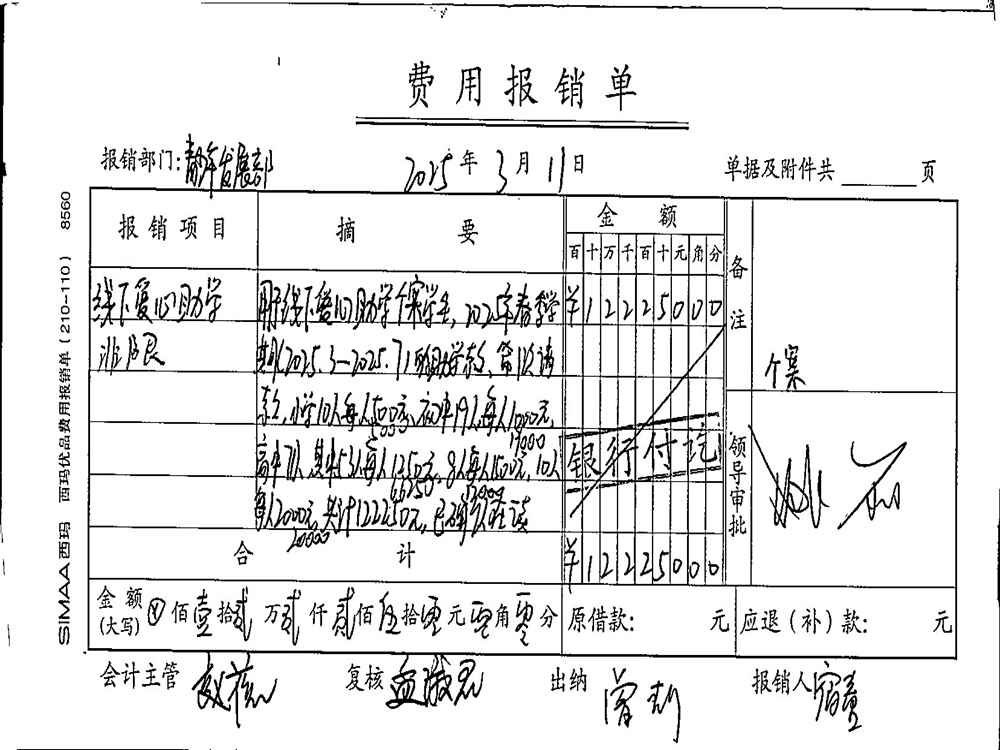 费用报销单
报销部门：青少年发展部 2025年3月11日 单据及附件共 页
报销项目 摘要 金额 备注
百十万千百十元角分
线下爱心助学 用于线下爱心助学个案学生，2025年春季学 ¥12225000
期(2025.3—2025.7)助学款，
小学10人每人500元，初中19人每人1000元， 个案
5000 19000
高中71人其中53人每人1250元，8人每人1500元，10人
66250 12000
每人2000元，共计122250元，
20000
银行付讫
领导审批
合计 ¥12225000
金额(大写) ⊗佰壹拾贰万贰仟贰佰伍拾零元零角零分 原借款： 元 应退（补）款： 元
会计主管 复核 出纳 报销人
SIMAA西玛 西玛优品费用报销单（210-110） 8560